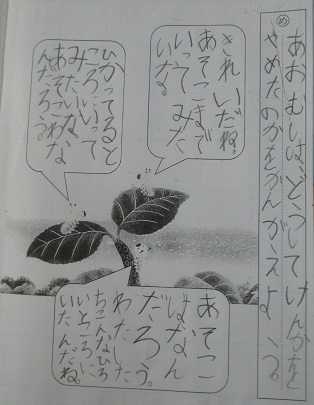 め
あおむしは、どうしてけんかを
やめたのかをかんがえよう。
きれいだね。
あそこまで
いってみた
いな。
ひかってると
ころにいって
みたいな。
あそこはな
んだろう。
あそこ
はなん
だろう。
わたした
ちこんなひろ
いところに
いたんだね。